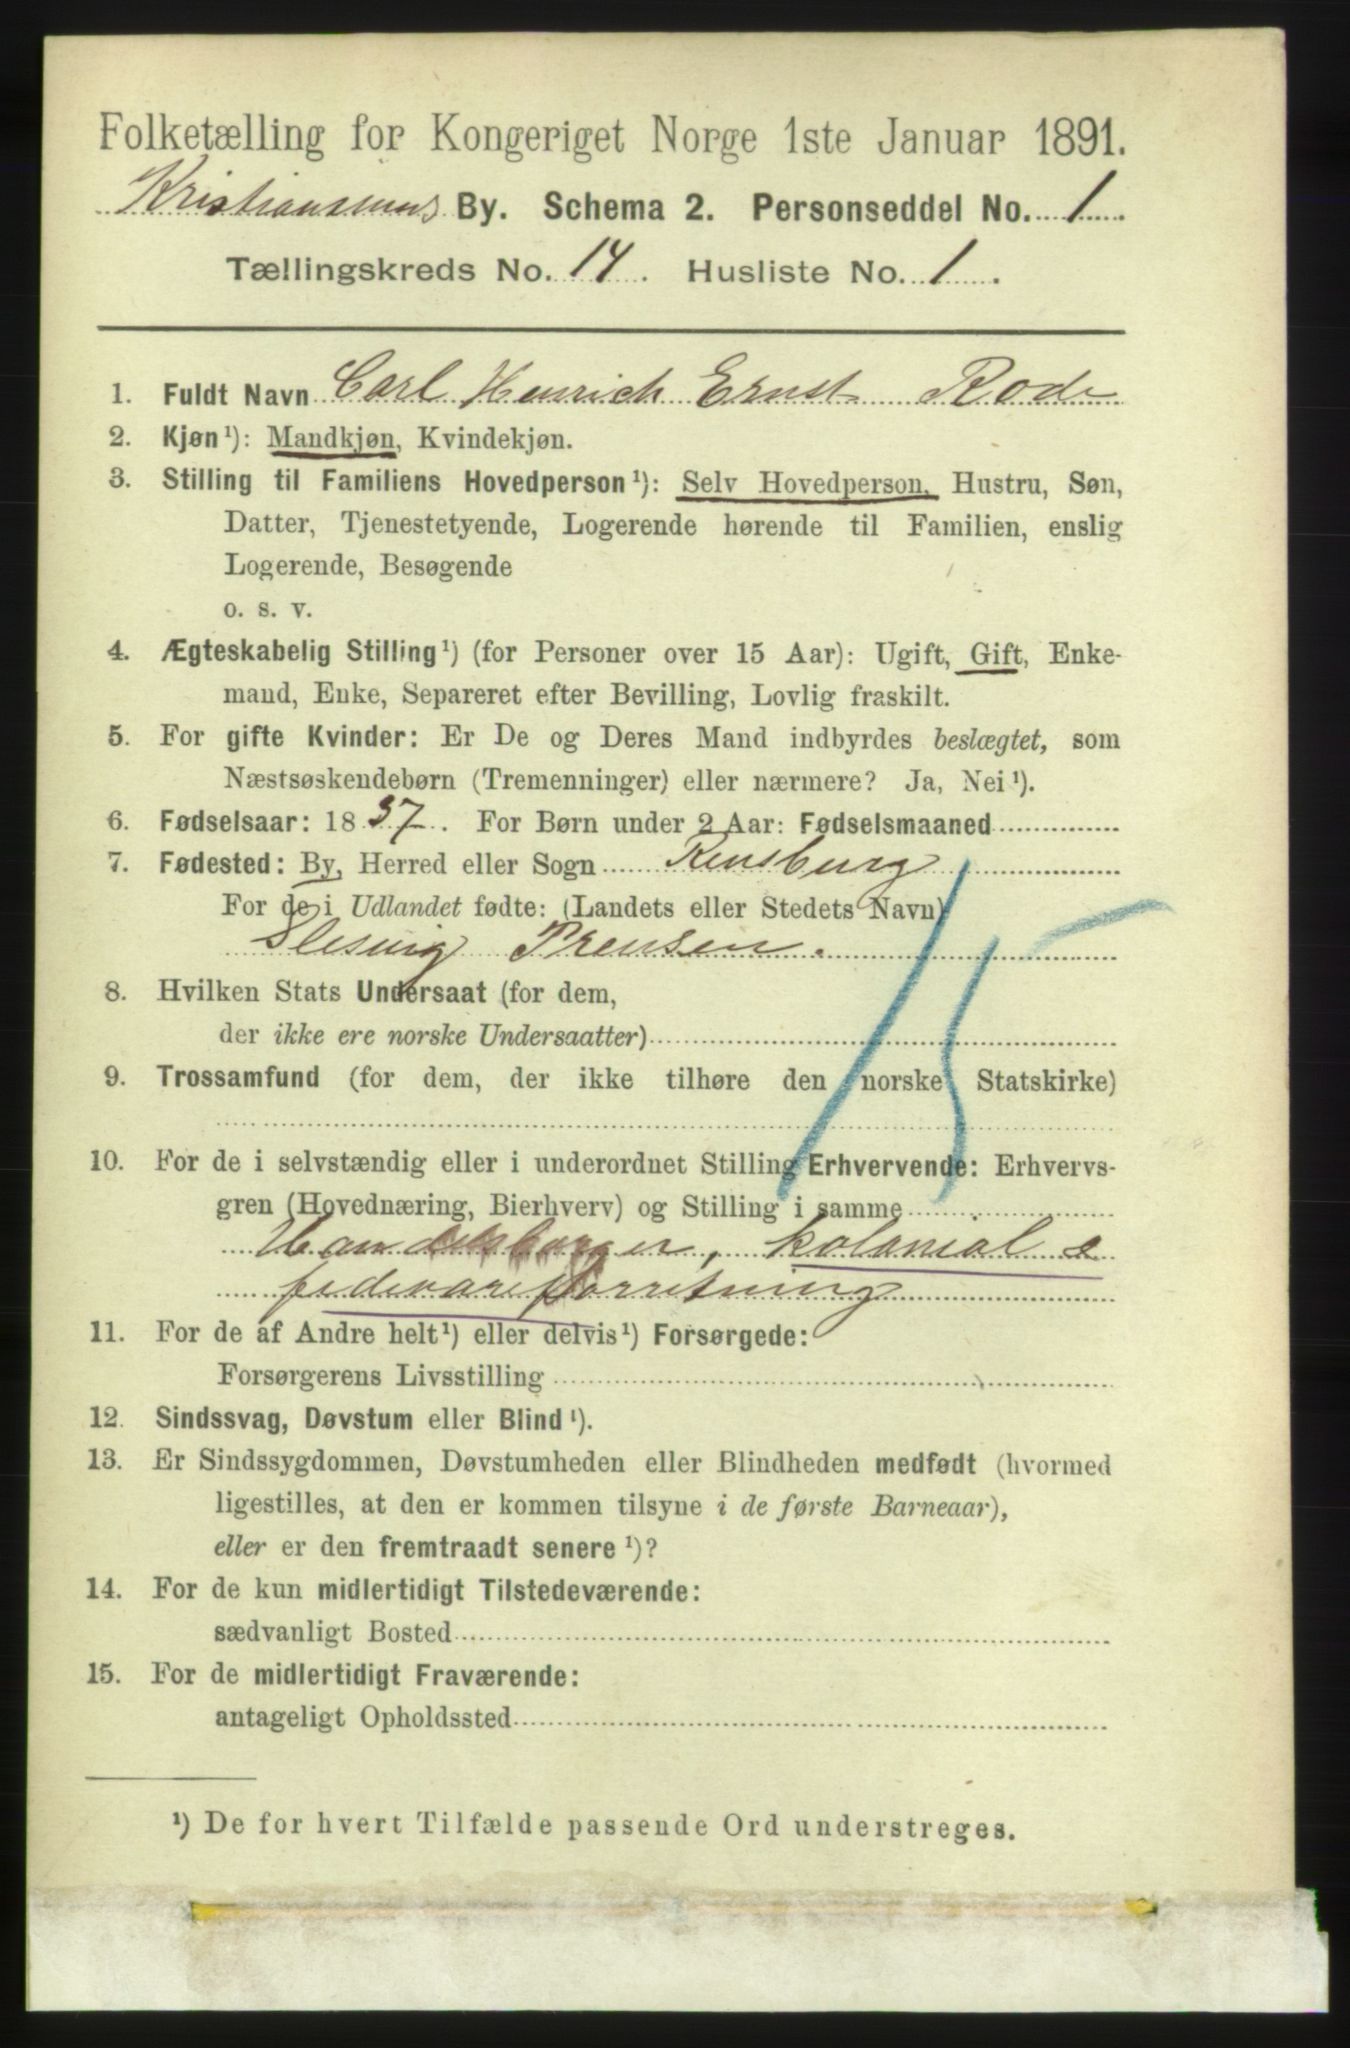 Folketælling for Kongeriget Norge 1ste Januar 1891.
Kristianssunds By. Schema 2. Personseddel No. 1
Tællingskreds No. 14. Husliste No. 1.
1. Fuldt Navn Carl Henrich Ernst Rode
2. Kjøn¹): Mandkjøn, Kvindekjøn.
3. Stilling til Familiens Hovedperson¹): Selv Hovedperson, Hustru, Søn,
Datter, Tjenestetyende, Logerende hørende til Familien, enslig
Logerende, Besøgende
o. s. v.
4. Ægteskabelig Stilling¹) (for Personer over 15 Aar): Ugift, Gift, Enke-
mand, Enke, Separeret efter Bevilling, Lovlig fraskilt.
5. For gifte Kvinder: Er De og Deres Mand indbyrdes beslægtet, som
Næstsøskendebørn (Tremenninger) eller nærmere? Ja, Nei¹).
6. Fødselsaar: 1837. For Børn under 2 Aar: Fødselsmaaned
7. Fødested: By, Herred eller Sogn Rensburg
For de i Udlandet fødte: (Landets eller Stedets Navn)
Slesvig Preusen.
15
8. Hvilken Stats Undersaat (for dem,
der ikke ere norske Undersaatter)
9. Trossamfund (for dem, der ikke tilhøre den norske Statskirke)
10. For de i selvstændig eller i underordnet Stilling Erhvervende: Erhvervs-
gren (Hovednæring, Bierhverv) og Stilling i samme
Handelsborger, kolonial &
fedevareforretning
11. For de af Andre helt¹) eller delvis¹) Forsørgede:
Forsørgerens Livsstilling
12. Sindssvag, Døvstum eller Blind¹).
13. Er Sindssygdommen, Døvstumheden eller Blindheden medfødt (hvormed
ligestilles, at den er kommen tilsyne i de første Barneaar),
eller er den fremtraadt senere¹)?
14. For de kun midlertidigt Tilstedeværende:
sædvanligt Bosted
15. For de midlertidigt Fraværende:
antageligt Opholdssted
¹) De for hvert Tilfælde passende Ord understreges.